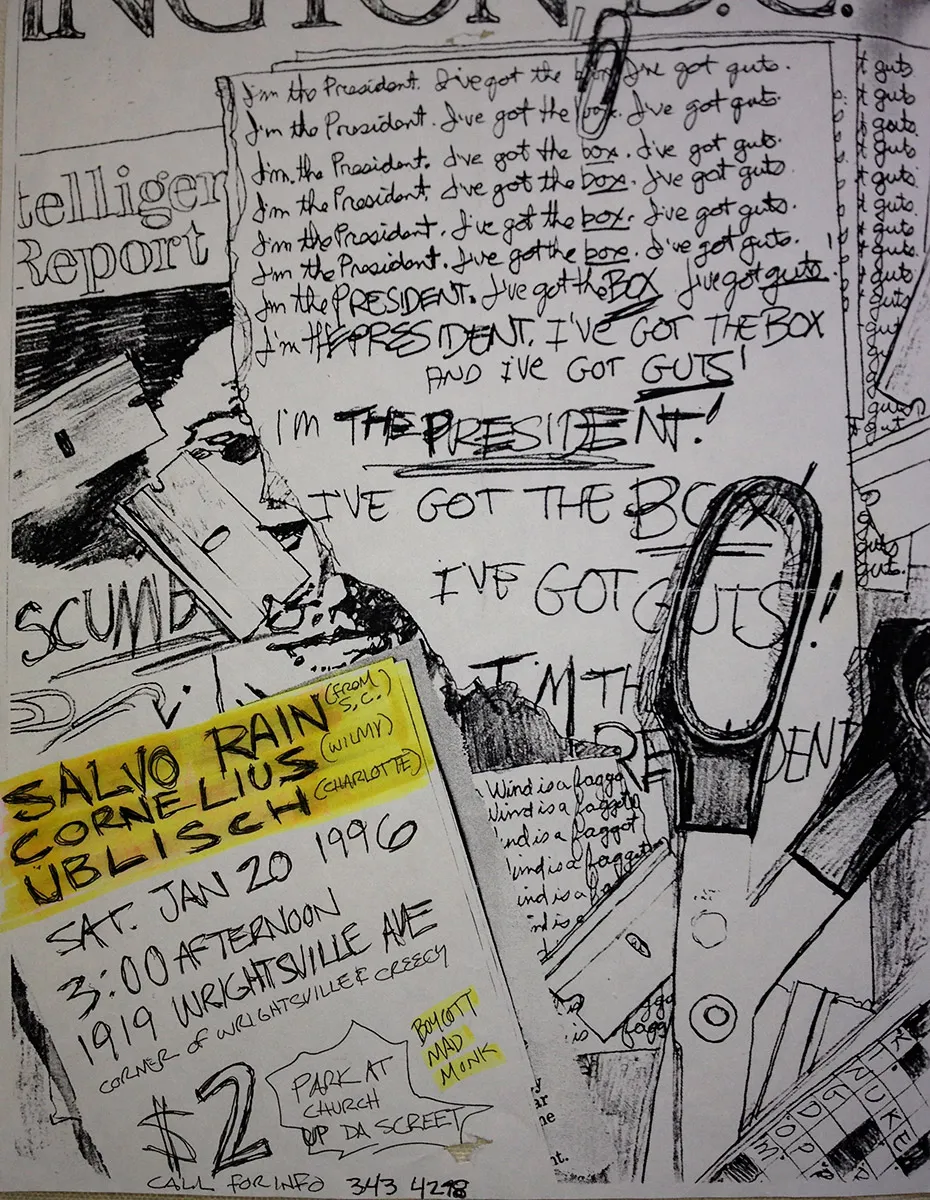 INGTON, D.C.
telligen
Report
I'm the President. I've got the box. I've got guts.
I'm the President. I've got the box. I've got guts.
I'm the President. I've got the box. I've got guts.
I'm the President. I've got the box. I've got guts.
I'm the President. I've got the box. I've got guts.
I'm the President. I've got the box. I've got guts.
I'm the PRESIDENT. I've got the BOX I've got guts.
I'm the PRESIDENT. I'VE GOT THE BOX
AND I'VE GOT GUTS!
I'M THE PRESIDENT!
I'VE GOT THE BOX!
I'VE GOT GUTS!
I'M TH
PRE IDENT
t guts.
t guts
t guts.
t guts.
t guts.
t guts.
t guts.
t guts
guts
guts
guts
guts.
SCUMB
SALVO RAIN (FROM S.C.)
CORNELIUS (WILMY)
UBLISCH (CHARLOTTE)
SAT. JAN 20 1996
3:00 AFTERNOON
1919 WRIGHTSVILLE AVE
CORNER OF WRIGHTSVILLE & CREECY
$2
PARK AT
CHURCH
UP DA SCREET
BOYCOTT
MAD
MONK
CALL FOR INFO 343 4298
Wind is a faggo
Wind is a faggot
ind is a faggot
ind is a faggot
ind is a fa
nd is a
is fagg
NUKE